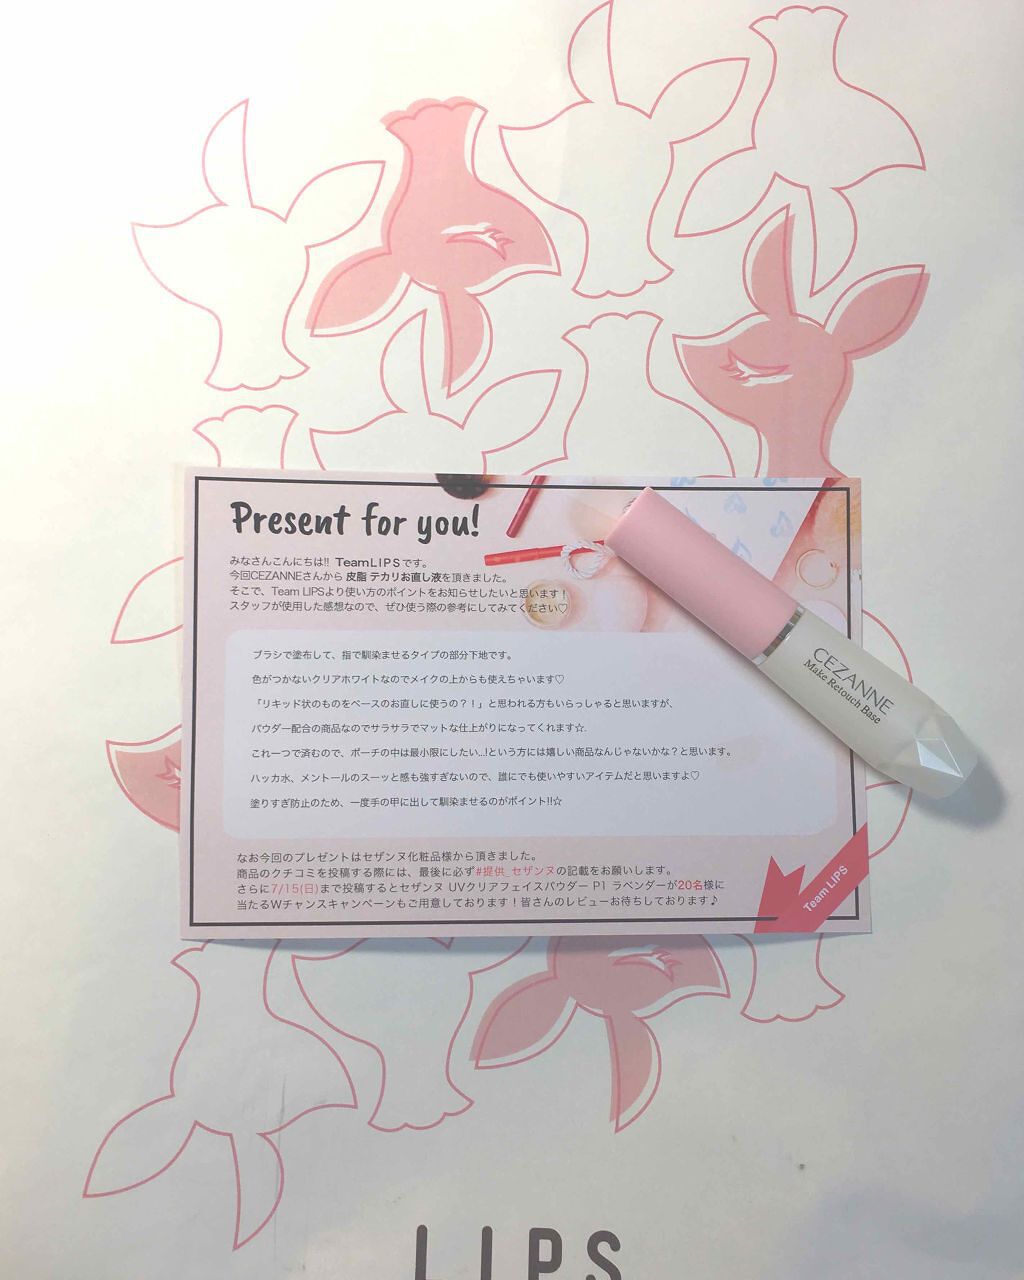 Present for you!
みなさんこんにちは!! TeamLIPSです。
今回CEZANNEさんから 皮脂 テカリお直し液を頂きました。
そこで、Team LIPSより使い方のポイントをお知らせしたいと思います！
スタッフが使用した感想なので、ぜひ使う際の参考にしてみてください♡
ブラシで塗布して、指で馴染ませるタイプの部分下地です。
色がつかないクリアホワイトなのでメイクの上からも使えちゃいます♡
「リキッド状のものをベースのお直しに使うの？！」と思われる方もいらっしゃると思いますが、
パウダー配合の商品なのでサラサラでマットな仕上がりになってくれます☆.
これ一つで済むので、ポーチの中は最小限にしたい...!という方には嬉しい商品なんじゃないかな？と思います。
ハッカ水、メントールのスーッと感も強すぎないので、誰にでも使いやすいアイテムだと思いますよ♡
塗りすぎ防止のため、一度手の甲に出して馴染ませるのがポイント!!☆
なお今回のプレゼントはセザンヌ化粧品様から頂きました。
商品のクチコミを投稿する際には、最後に必ず#提供_セザンヌの記載をお願いします。
さらに7/15(日)まで投稿するとセザンヌ UVクリアフェイスパウダー P1 ラベンダーが20名様に
当たるWチャンスキャンペーンもご用意しております！皆さんのレビューお待ちしております♪
Team LIPS
CEZANNE
Make Retouch Base
LIPS